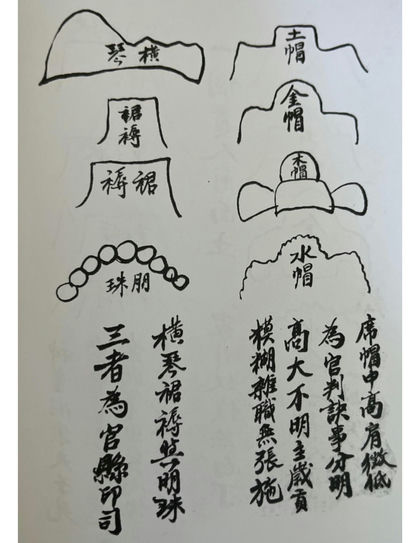 土帽
金帽
木帽
水帽
橫琴
裙褥
裙褥
朋珠
席帽中高肩微低
為官判訣事分明
高大不明主歲貢
糢糊雜職無張施
橫琴裙褥與明珠
三者為官縣印司